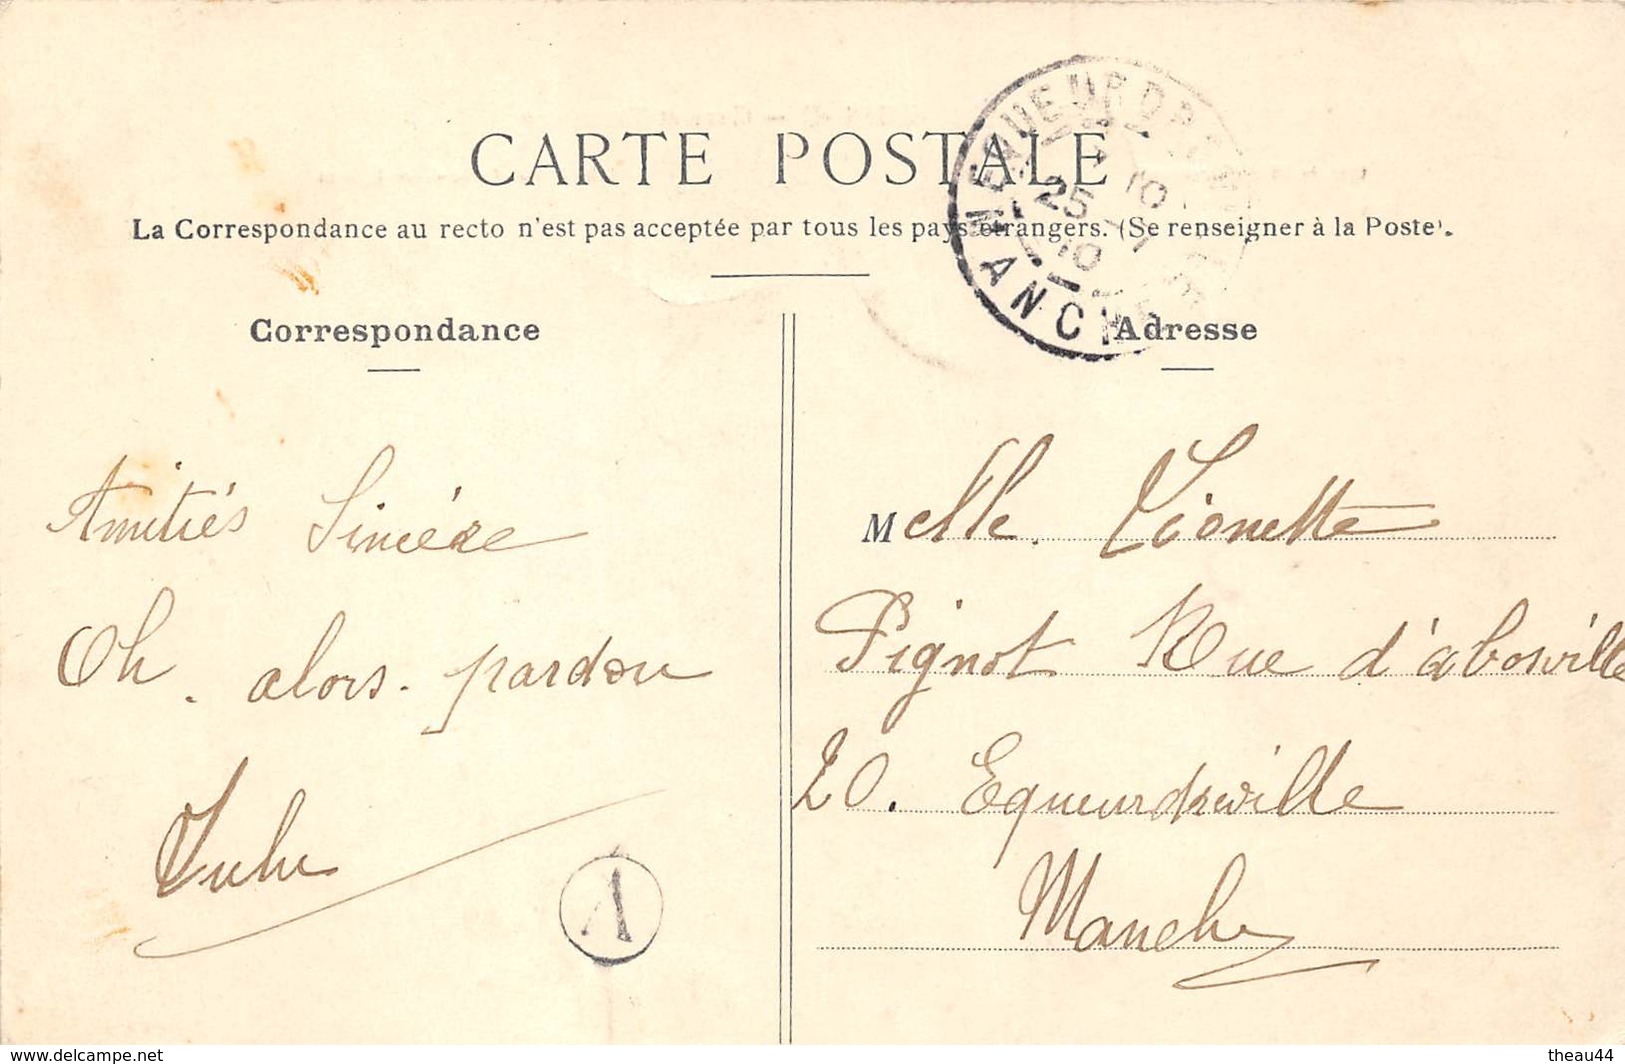 CARTE POSTALE
La Correspondance au recto n'est pas acceptée par tous les pays étrangers. (Se renseigner à la Poste).
EQUEURDREVILLE
10
25 - 1
10
MANCHE
Correspondance
Adresse
Amitiés Sincère
Oh. alors. pardon
Melle. Lionette
Pignot Rue d'abosville
20. Equeurdreville
Manche
www.delcampe.net
theau44